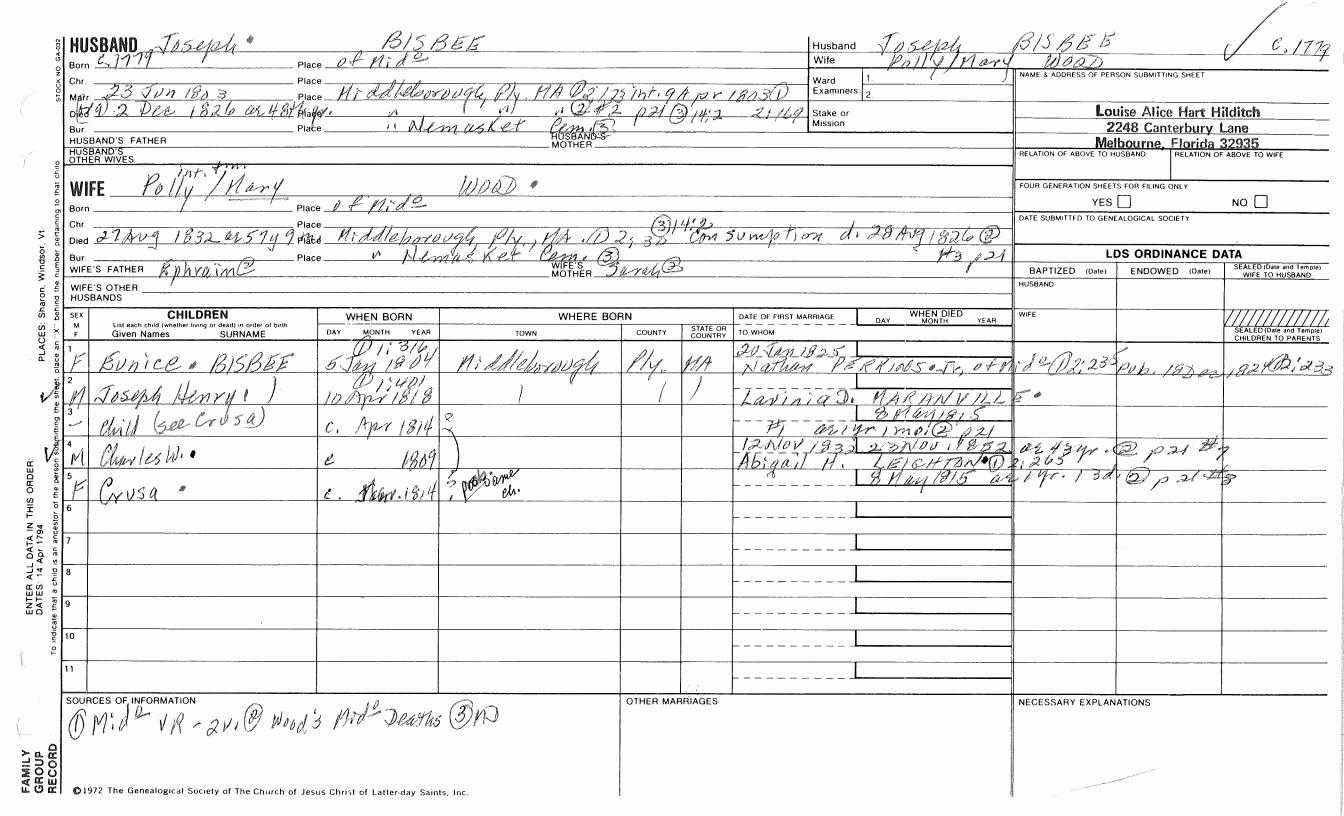 STOCK NO. GA-032
HUSBAND Joseph BISBEE
Husband Joseph BISBEE c.1779
Born c.1779 Place of Mido
Wife Polly/Mary WOOD
Chr. Place
Ward 1.
Examiners 2.
NAME & ADDRESS OF PERSON SUBMITTING SHEET
Marr 23 Jun 1803 Place Middleborough, Ply. MA ① 2/123 int. 9 Apr 1803 ①
Died 2 Dec 1826 ae 48 Place " " " ② #2 p21 ③ 14:2 2:169
Stake or Mission
Bur. Place " Nemasket Cem. ③
Louise Alice Hart Hilditch
2248 Canterbury Lane
Melbourne, Florida 32935
HUSBAND'S FATHER
HUSBAND'S MOTHER
HUSBAND'S OTHER WIVES
RELATION OF ABOVE TO HUSBAND RELATION OF ABOVE TO WIFE
int. fm
WIFE Polly/Mary WOOD
FOUR GENERATION SHEETS FOR FILING ONLY
YES NO
Born Place of Mido
Chr. Place ③ 14:2
DATE SUBMITTED TO GENEALOGICAL SOCIETY
Died 27 Aug 1832 ae 57y 9m Place Middleborough, Ply., MA. ① 2; 32 Consumption d. 28 Aug 1826 ②
Bur. Place " Nemasket Cem. ③ #3 p21
WIFE'S FATHER Ephraim ② WIFE'S MOTHER Sarah ②
WIFE'S OTHER HUSBANDS
LDS ORDINANCE DATA
BAPTIZED (Date) ENDOWED (Date) SEALED (Date and Temple) WIFE TO HUSBAND
HUSBAND
WIFE
SEALED (Date and Temple) CHILDREN TO PARENTS
SEX M F
CHILDREN
List each child (whether living or dead) in order of birth
Given Names SURNAME
WHEN BORN
DAY MONTH YEAR
WHERE BORN
TOWN COUNTY STATE OR COUNTRY
DATE OF FIRST MARRIAGE
TO WHOM
WHEN DIED
DAY MONTH YEAR
① 1:316 20 Jan 1825
1 F Eunice BISBEE 5 Jan 1804 Middleborough Ply. MA Nathan PERKINS Jr. of Mido ① 2;235 pub. 18 Dec 1824 ① 2:233
① 1:401
2 M Joseph Henry 10 Apr 1818 Lavinia D. MARANVILLE
8 May 1815
3 - Child (see Crusa) c. Apr 1814 ? #1 ae 1yr 1mo. ② p21
12 Nov 1832 23 Nov 1852 ae 43yr. ② p21 #7
4 M Charles W. c 1809 Abigail H. LEIGHTON ① 2;265
8 May 1815 ae 1yr. 13d. ② p21 #3
5 F Crusa c. 1814 poss same ch.
6
7
8
9
10
11
SOURCES OF INFORMATION
① Mido VR - 2v. ② Wood's Mido Deaths ③ MD
OTHER MARRIAGES
NECESSARY EXPLANATIONS
©1972 The Genealogical Society of The Church of Jesus Christ of Latter-day Saints, Inc.
FAMILY GROUP RECORD
ENTER ALL DATA IN THIS ORDER:
DATES 14 Apr 1794
PLACES: Sharon, Windsor, Vt.
To indicate that a child is an ancestor of the person submitting the sheet, place an "X" behind the number pertaining to that child